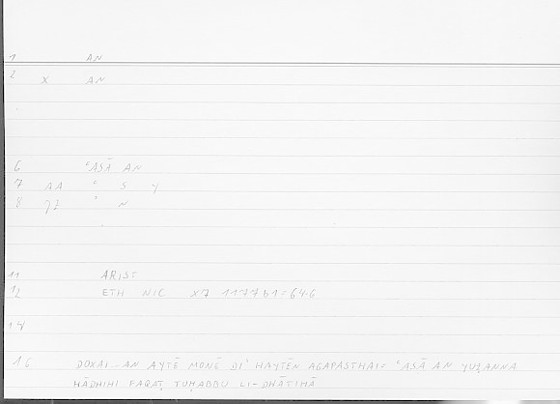 1 AN
2 X AN
6 ʿASĀ AN
7 AA ʿ S Y
8 ʾ N
11 ARIST
12 ETH NIC X7 1177b1=64.6
14
16 DOXAI AN AYTĒ MONĒ DI' HAYTĒN AGAPASTHAI= ʿASĀ AN YUẒANNA
HĀDHIHI FAQAṬ TUḤABBU LI-DHĀTIHĀ